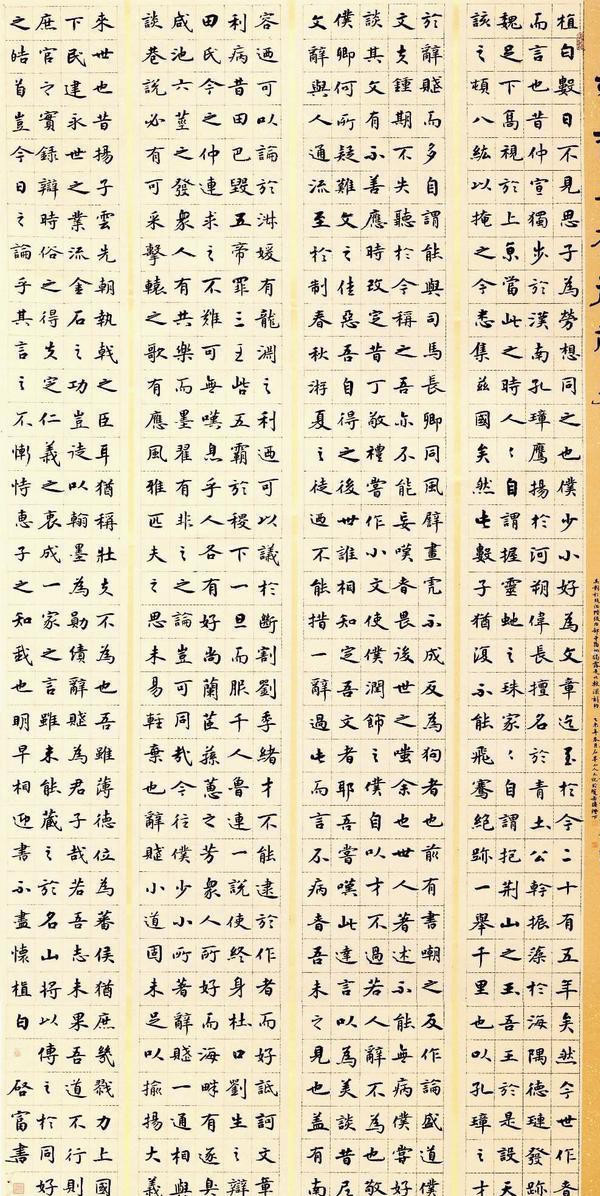 植白數日不見思子為勞想同之也僕少小好為文章迄至於今二十有五年矣然今世作者
而言也昔仲宣獨步於漢南孔璋鷹揚於河朔偉長擅名於青土公幹振藻於海隅德璉發跡
魏足下高視於上京當此之時人〻自謂握靈蛇之珠家〻自謂抱荊山之玉吾王於是設天
該之頓八紘以掩之今悉集茲國矣然此數子猶復不能飛騫絕跡一舉千里也以孔璋之才
於辭賦而多自謂能與司馬長卿同風譬畫虎不成反為狗者也前有書嘲之反作論盛道僕
文夫鍾期不失聽於今稱之吾亦不能妄嘆者畏後世之嗤余也世人著述不能無病僕嘗好
談其文有不善應時改定昔丁敬禮嘗作小文使僕潤飾之僕自以才不過若人辭不為也敬
僕卿何所疑難文之佳惡吾自得之後世誰相知定吾文者耶吾嘗嘆此達言以為美談昔尼
文辭與人通流至於制春秋游夏之徒迺不能措一辭過此而言不病者吾未之見也蓋有南
容迺可以論於淑媛有龍淵之利迺可以議於斷割劉季緒才不能逮於作者而好詆訶文章
利病昔田巴毀五帝罪三王呰五霸於稷下一旦而服千人魯連一說使終身杜口劉生之辯
田氏今之仲連求之不難可無嘆息乎人各有好尚蘭茝蓀蕙之芳眾人所好而海畔有逐臭
咸池六莖之發眾人有共樂而墨翟有非之之論豈可同哉今往僕少小所著辭賦一通相與
談巷說必有可采擊轅之歌有應風雅匹夫之思未易輕棄也辭賦小道固未足以揄揚大義
來世也昔揚子雲先朝執戟之臣耳猶稱壯夫不為也吾雖薄德位為蕃侯猶庶幾戮力上國
下民建永世之業流金石之功豈徒以翰墨為勳績辭賦為君子哉若吾志未果吾道不行則
庶官之實錄辯時俗之得失定仁義之衷成一家之言雖未能藏之於名山將以傳之於同好
之皓首豈今日之論乎其言之不慚恃惠子之知我也明早相迎書不盡懷植白 啓富書